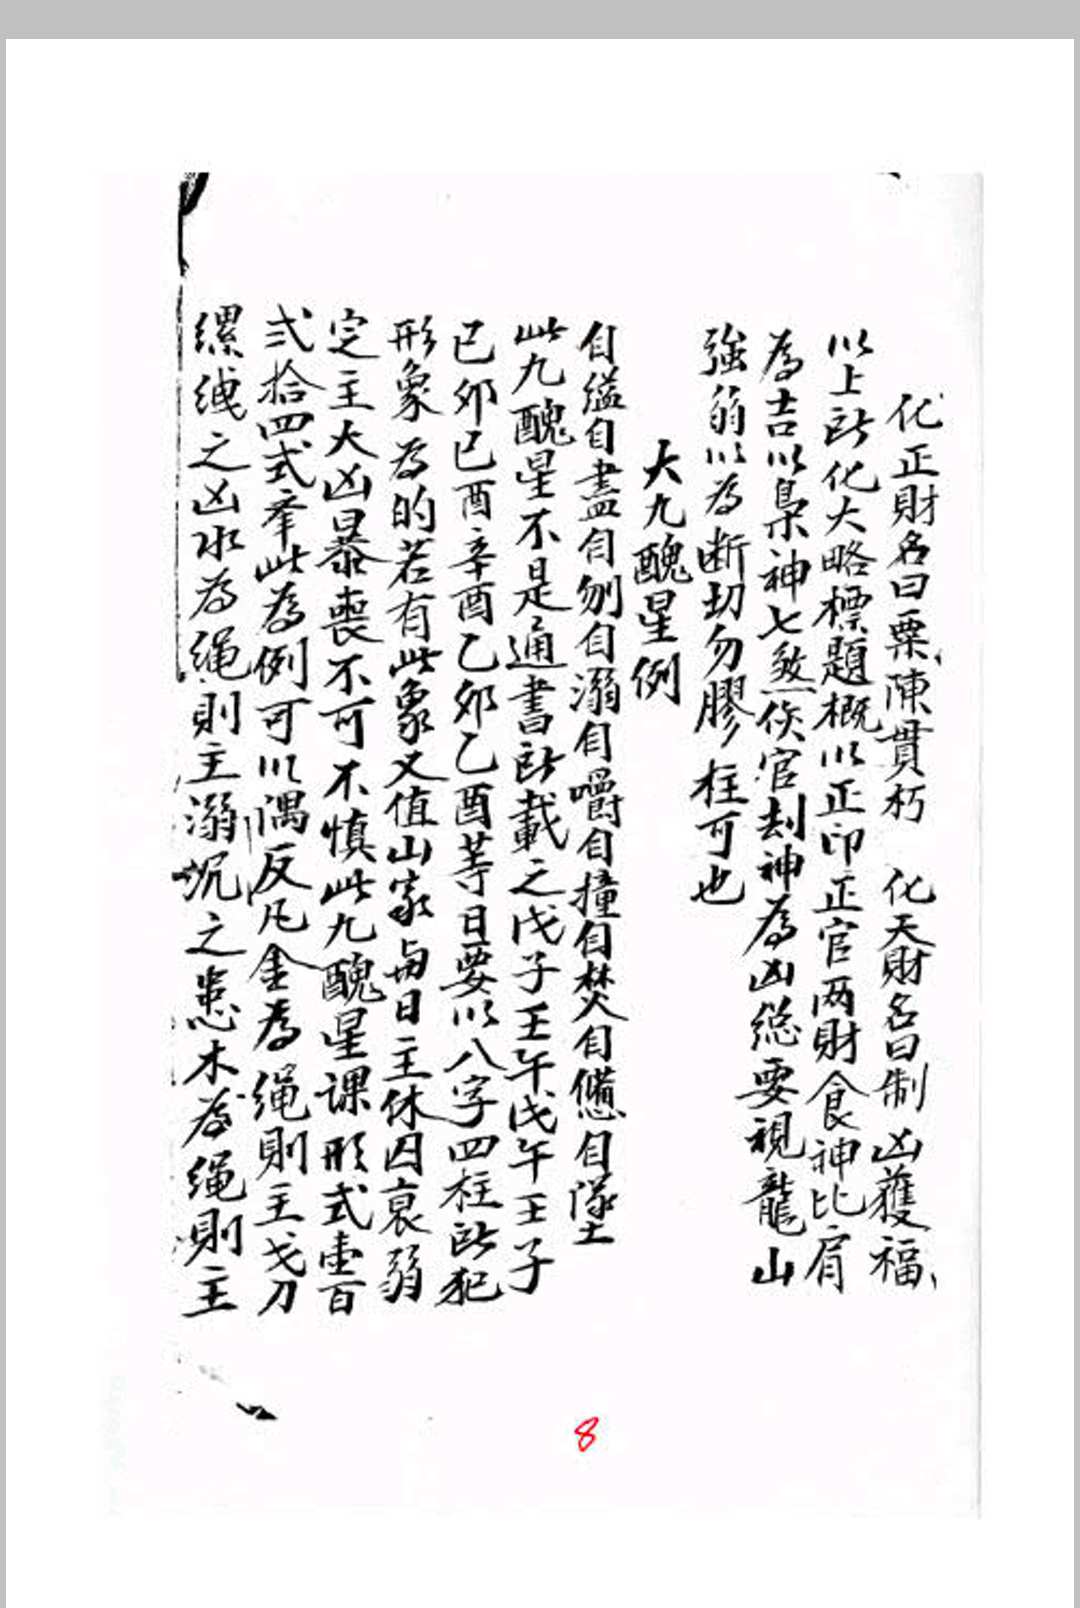 化正財名曰粟陳貫朽　化天財名曰制凶獲福
以上所化大略標題概以正印正官两財食神比肩
為吉以梟神七煞伤官刦神為凶縂要視龍山
強弱以為断切勿膠柱可也
大九醜星例
自縊自盡自刎自溺自嚼自撞自焚自憊自墜
此九醜星不是通書所載之戊子壬午戊午壬子
已卯已酉辛酉乙卯乙酉等日要以八字四柱所犯
形象為的若有此象又值山家与日主休囚衰弱
定主大凶暴喪不可不慎此九醜星课形式壹百
弍拾四式牽此為例可以隅反凡金為绳則主戈刀
縲绁之凶水為绳則主溺沉之患木為绳則主
8